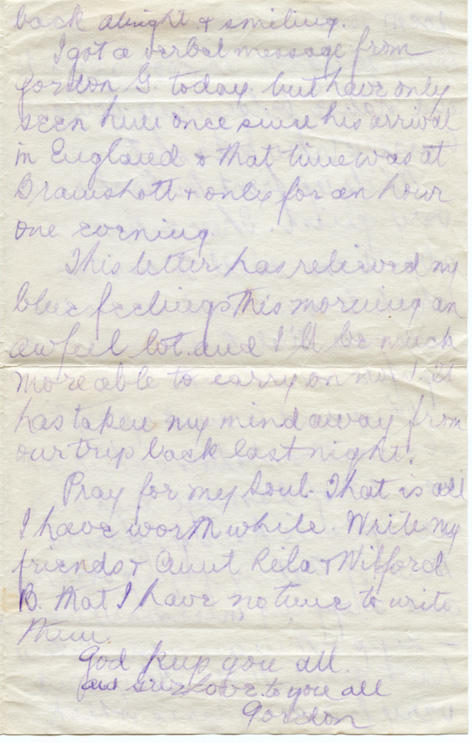 back alright & smiling.
I got a verbal message from
Gordon G. today, but have only
seen him once since his arrival
in England & that time was at
Bramshott & only for an hour
one evening.
This letter has relieved my
blue feelings this morning an
awful lot and I'll be much
more able to carry on my. It
has taken my mind away from
our trip back last night.
Pray for my Soul. That is all
I have worth while. Write my
friends & Aunt Rela & Wilford
B. that I have no time to write
them.
God keep you all.
love to you all
Gordon